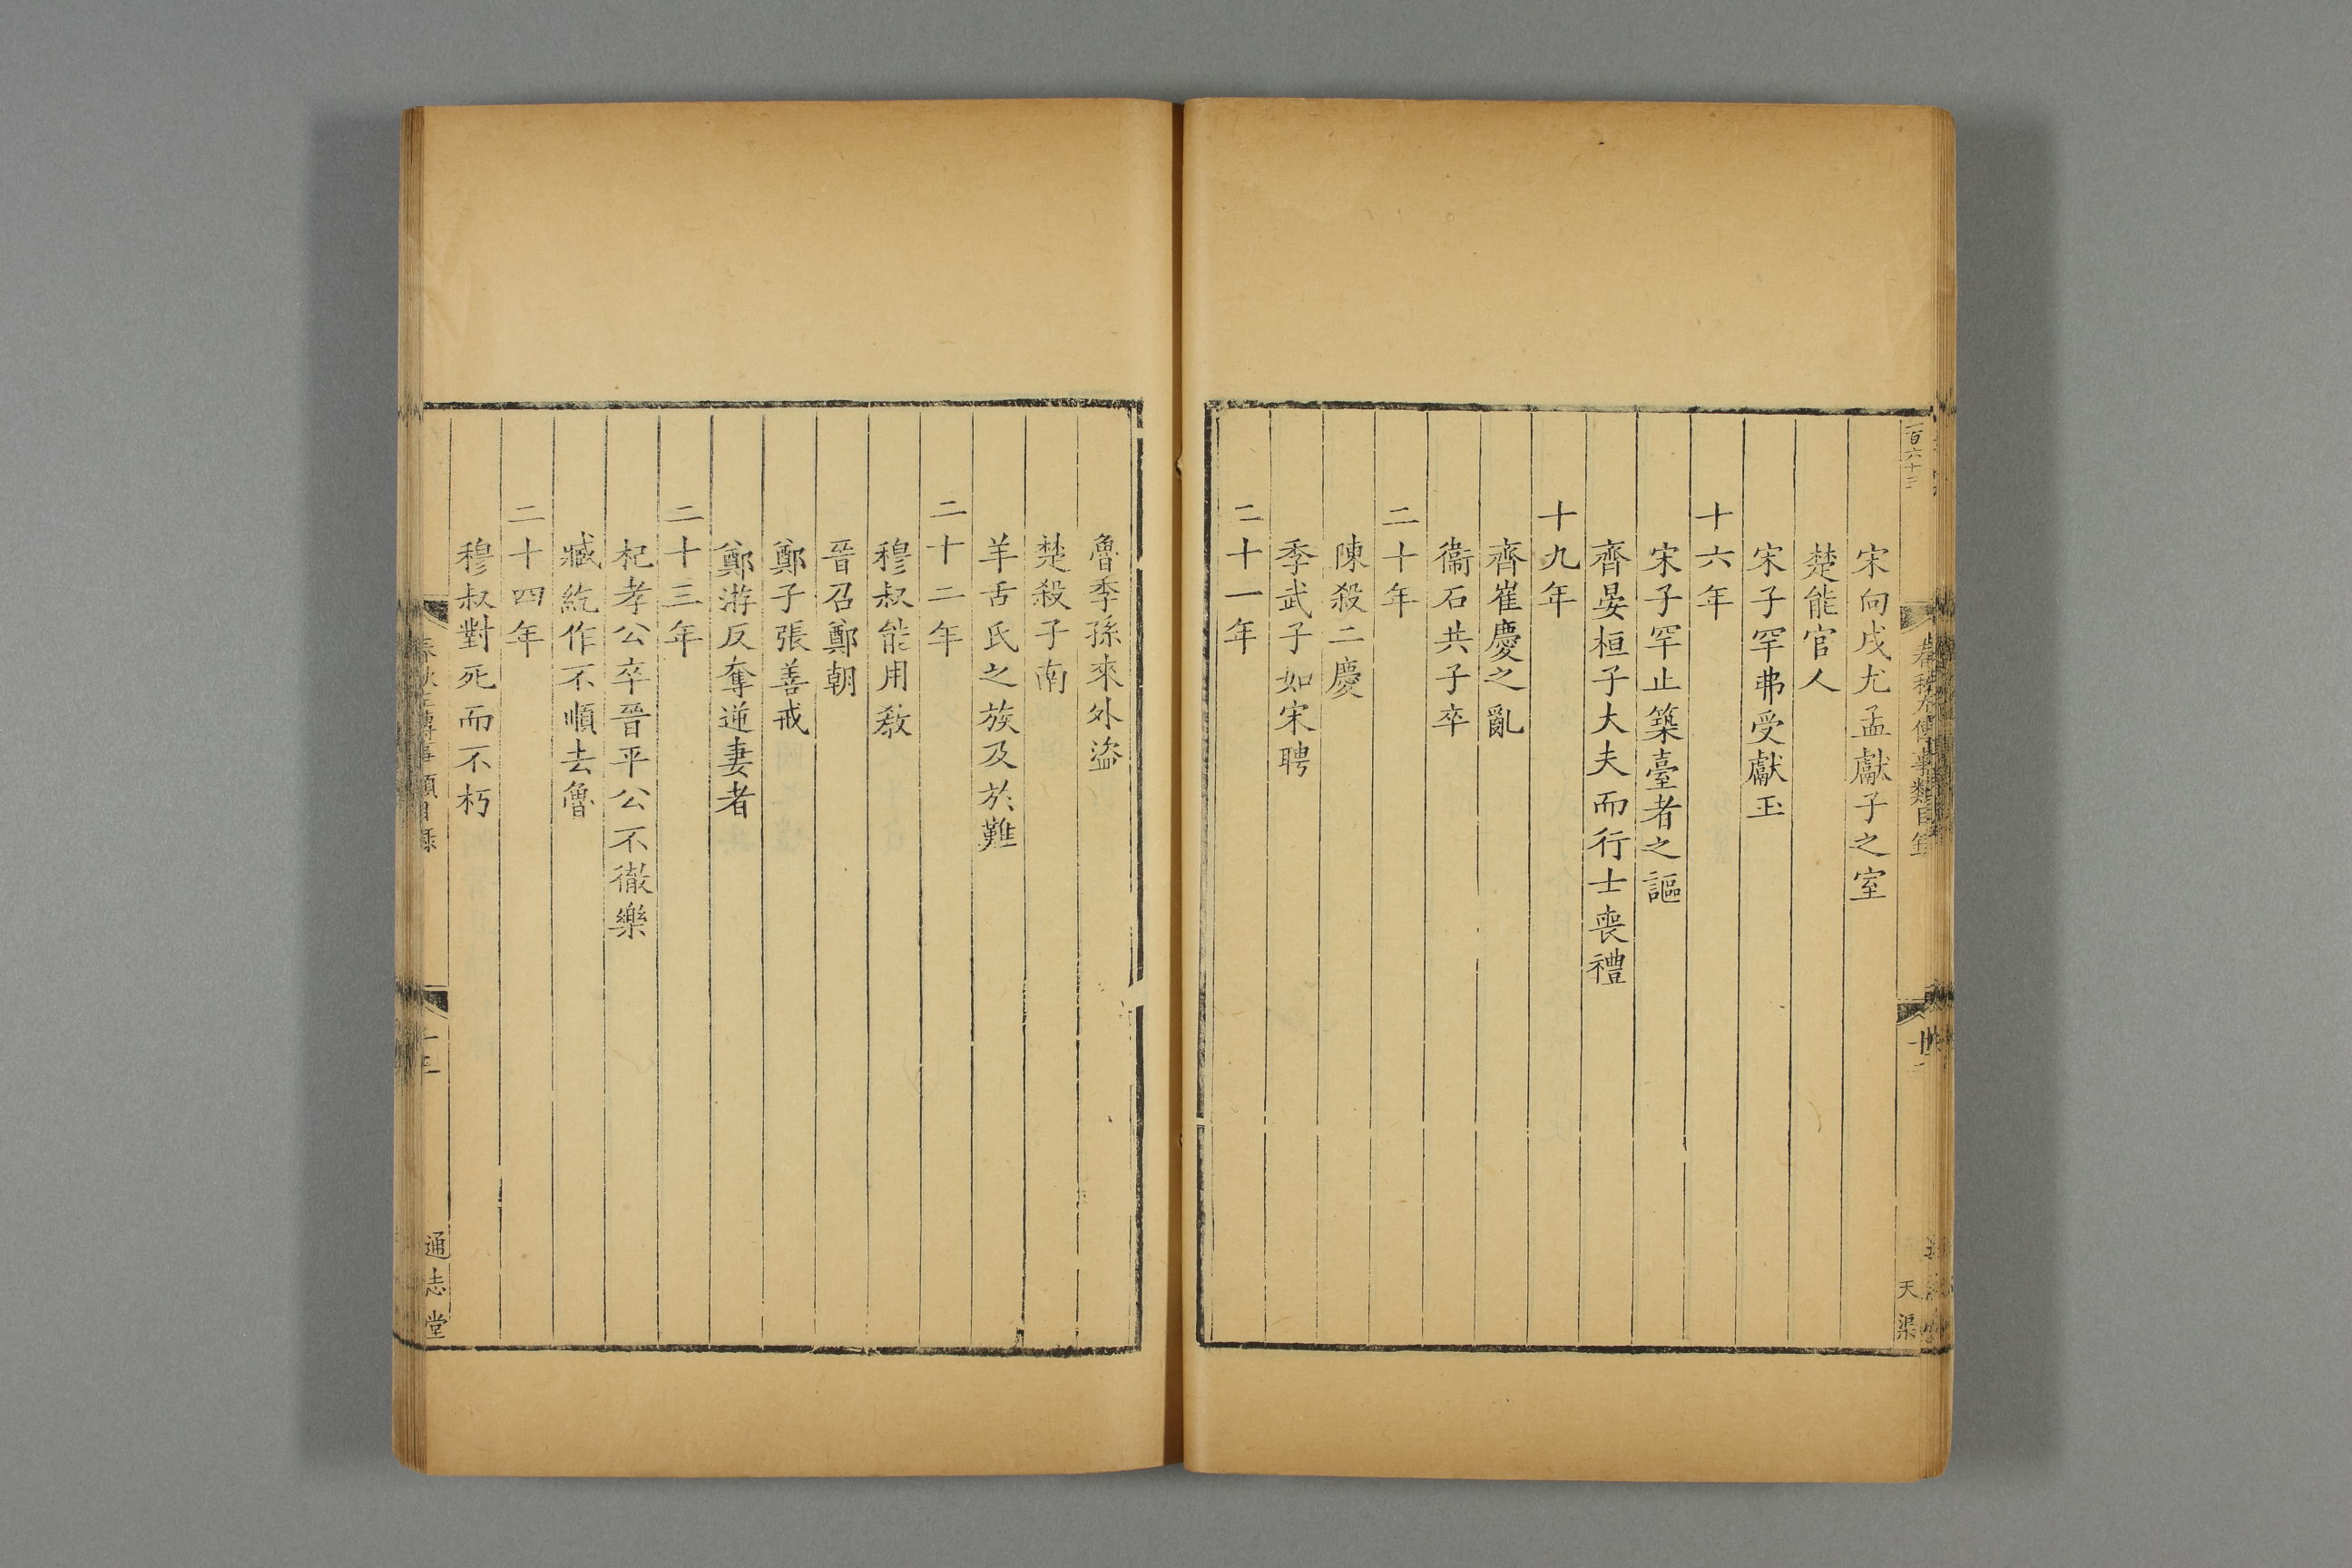 百六十三
宋向戌尤孟獻子之室
楚能官人
宋子罕弗受獻玉
十六年
宋子罕止築臺者之謳
齊晏桓子大夫而行士喪禮
十九年
齊崔慶之亂
衞石共子卒
二十年
陳殺二慶
季武子如宋聘
二十一年
天渠
魯季孫來外盜
楚殺子南
羊舌氏之族及於難
二十二年
穆叔能用敎
晉召鄭朝
鄭子張善戒
鄭游反奪逆妻者
二十三年
杞孝公卒晉平公不徹樂
臧紇作不順去魯
二十四年
穆叔對死而不朽
通志堂